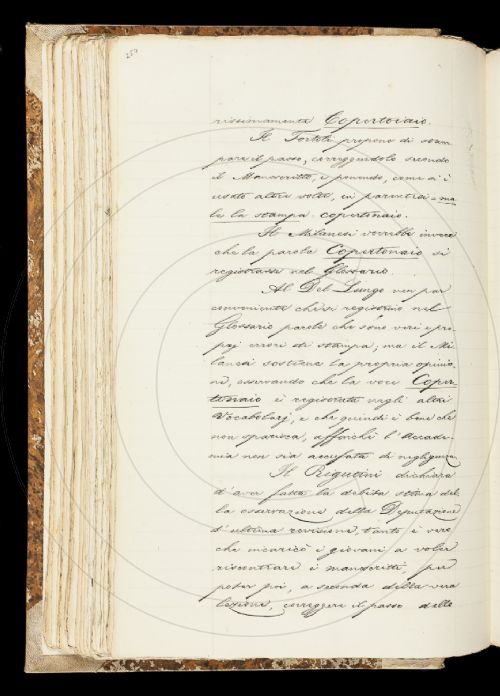 rissimamente Copertoiaio.
Il Tortoli propone di stam
pare il passo, correggendolo secondo
il Manoscritto, e ponendo, come si è
usato altre volte, in parentesi = ma
le la stampa copertonaio.
Il Milanesi vorrebbe invece
che la parola Copertonaio si
registrasse nel Glossario.
Al Del Lungo non par
conveniente che si registrino nel
Glossario parole che sono veri e pro
prj errori di stampa; ma il Mi
lanesi sostiene la propria opinio
ne, osservando che la voce Coper
tonaio è registrata negli altri
Vocabolarj, e che quindi è bene che
non sparisca, affinchè l'Accade-
mia non sia accusata di negligenza.
Il Rigutini dichiara
d'aver fatto la debita stima del
la osservazione della Deputazione
d'ultima revisione, tanto è vero
che incaricò i giovani a voler
riscontrare i manoscritti, per
poter poi, a seconda della vera
lezione, correggere il passo delle